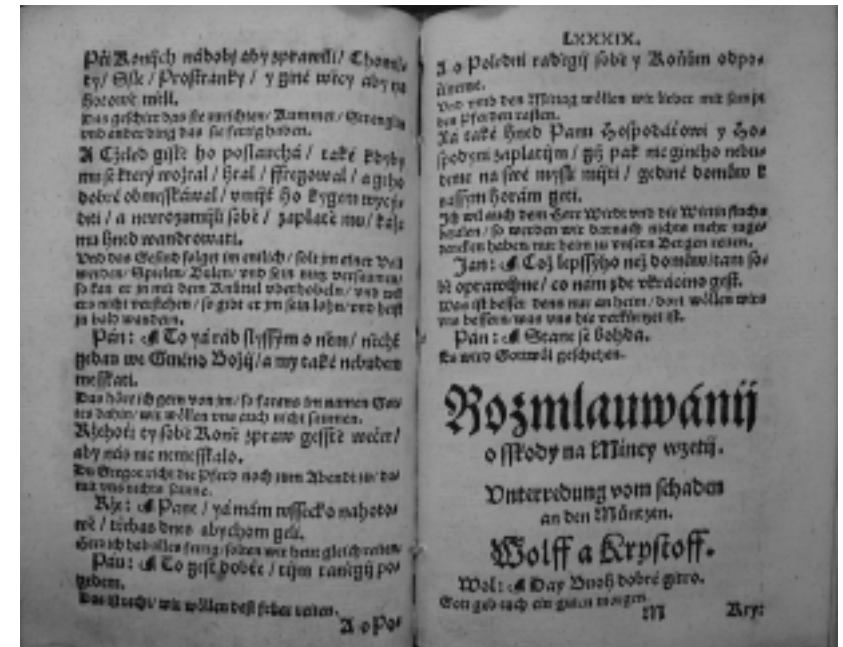 Při Koních nádobj aby zprawili / Chomau-
ty / Sslé / Prostranky / y giné wěcy aby na
hotowě měli.
Das geschirr das sie anrichten / Kummet / Strenglin
vnd ander ding das sie fertig haben.
A Cželed gistě ho poslauchá / také kdyby
mu se který wožral / hral / ffregowal / a geho
dobré obmesskáwal / vmjt ho kygem wycy-
diti / a newrozomjli sobě / zaplatě mu / káže
mu hned wandrowati.
Vnd das Gesind folget jm entlich / solt jm einer Voll
werden / Spielen / Bulen / vnd sein nutz versaumen /
so kan er jn mit dem Knüttel vberhobeln / vnd wil
ers nicht verstehen / so gibt er jm sein lohn / vnd heist
jn bald wandern.
Pán: To yá rád slyssým o něm / nechť
gedau we Gméno Božij / a my také nebudem
messkati.
Das höre ich gern von jm / so farens im namen Got-
tes dahin / wir wöllen vns auch nicht seumen.
Ržehoři ty sobě Koně zpraw gesstě wečer /
aby nás nic nemesskalo.
Du Gregor richt die Pferd noch zum Abendt zu / da-
mit vns nichts saume.
Rže: Pane / yá mám wssecko nahoto-
wě / třebas dnes abychom geli.
Herr ich hab alles fertig / solten wir heut gleich reiten.
Pán: To gest dobře / tým raněgij po-
gedem.
Das ist recht / wir wöllen dest früer reiten.
A o Po-
LXXXIX.
A o Poledni raděgij sobě y Koňům odpo-
čineme.
Vnd vmb den Mittag wöllen wir lieber mit sampt
den Pferden rasten.
Yá také hned Panu Hospodářowi y Ho-
spodyni zaplatjm / giž pak nic giného nebu-
deme na swé mysli mjti / gedině domůw k
nassým horám geti.
Ich wil auch dem Herr Wirdt vnd die Wirtin flucks
bezalen / so werden wir darnach nichts mehr zuge-
dencken haben nur heim zu vnsern Bergen reiten.
Jan: Což lepssýho než domůw / tam so-
bě oprawjme / co nám zde vkráceno gest.
Was ist besser denn nur anheim / dort wöllen wirs
vns bessern / was vns hie verkürtzet ist.
Pán: Stane se bohdá.
Es wird Gottwöl geschehen.
Rozmlauwánij
o sskody na Mincy wzetij.
Vnterredung vom schaden
an den Müntzen.
Wolff a Krystoff.
Wol: Day Buoh dobré gitro.
Gott geb euch ein guten morgen.
M Kry: